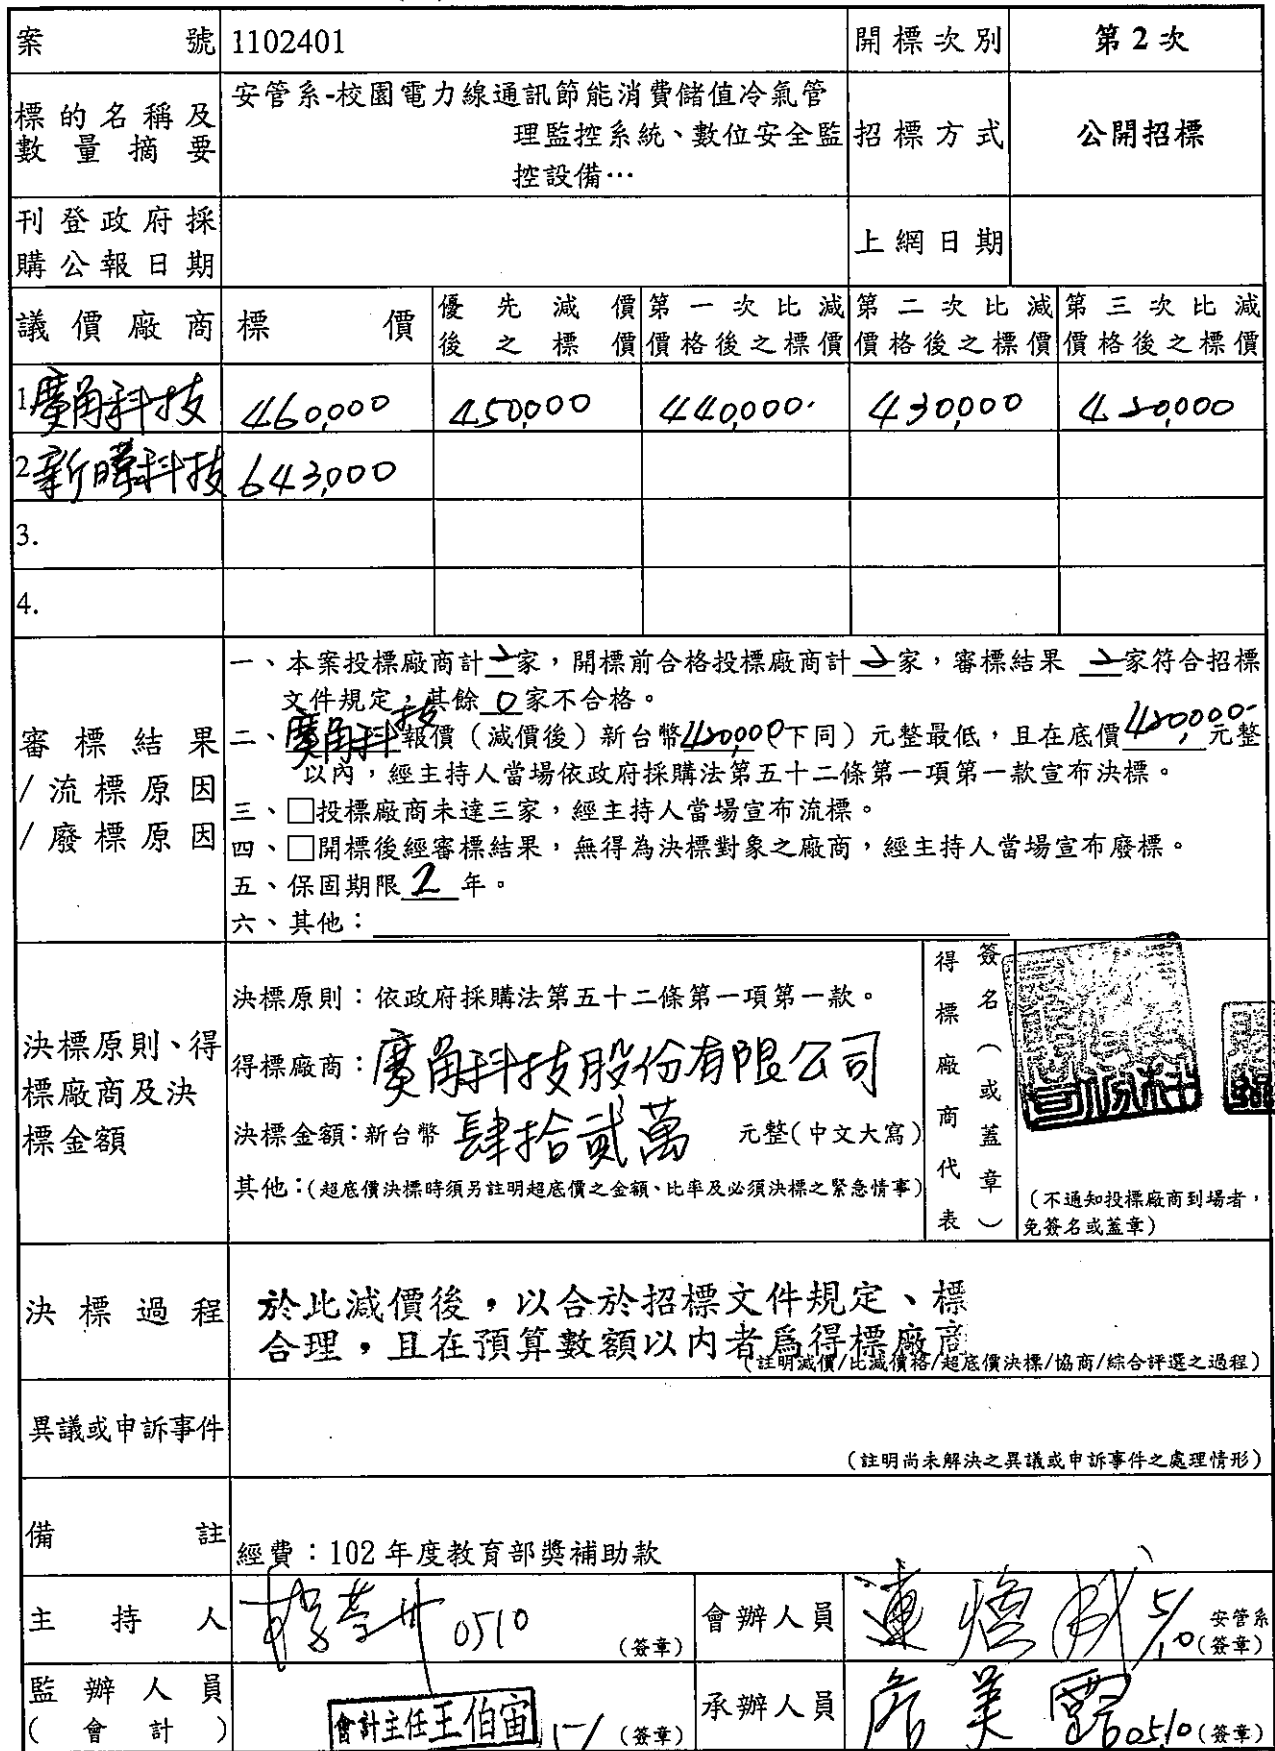 案號 1102401 開標次別 第2次
標的名稱及數量摘要 安管系-校園電力線通訊節能消費儲值冷氣管
理監控系統、數位安全監
控設備…
招標方式 公開招標
刊登政府採購公報日期 上網日期
議價廠商 標價 優先減價後之標價 第一次比減價格後之標價 第二次比減價格後之標價 第三次比減價格後之標價
1.廣角科技 460,000 450,000 440,000 430,000 420,000
2.新暐科技 643,000
3.
4.
審標結果
/流標原因
/廢標原因
一、本案投標廠商計2家,開標前合格投標廠商計2家,審標結果 2家符合招標
文件規定,其餘0家不合格。
二、廣角科技報價(減價後)新台幣420,000(下同)元整最低,且在底價420,000元整
以內,經主持人當場依政府採購法第五十二條第一項第一款宣布決標。
三、□投標廠商未達三家,經主持人當場宣布流標。
四、□開標後經審標結果,無得為決標對象之廠商,經主持人當場宣布廢標。
五、保固期限2年。
六、其他:
決標原則、得
標廠商及決
標金額
決標原則:依政府採購法第五十二條第一項第一款。
得標廠商:廣角科技股份有限公司
決標金額:新台幣 肆拾貳萬 元整(中文大寫)
其他:(超底價決標時須另註明超底價之金額、比率及必須決標之緊急情事)
得標廠商代表
簽名(或蓋章)
(不通知投標廠商到場者,
免簽名或蓋章)
決標過程
於此減價後,以合於招標文件規定、標
合理,且在預算數額以內者為得標廠商
(註明減價/比減價格/超底價決標/協商/綜合評選之過程)
異議或申訴事件
(註明尚未解決之異議或申訴事件之處理情形)
備註 經費:102年度教育部獎補助款
主持人 0510 (簽章) 會辦人員 5/10 安管系
(簽章)
監辦人員
(會計)
會計主任王伯宙 (簽章) 承辦人員 詹美露 0510 (簽章)